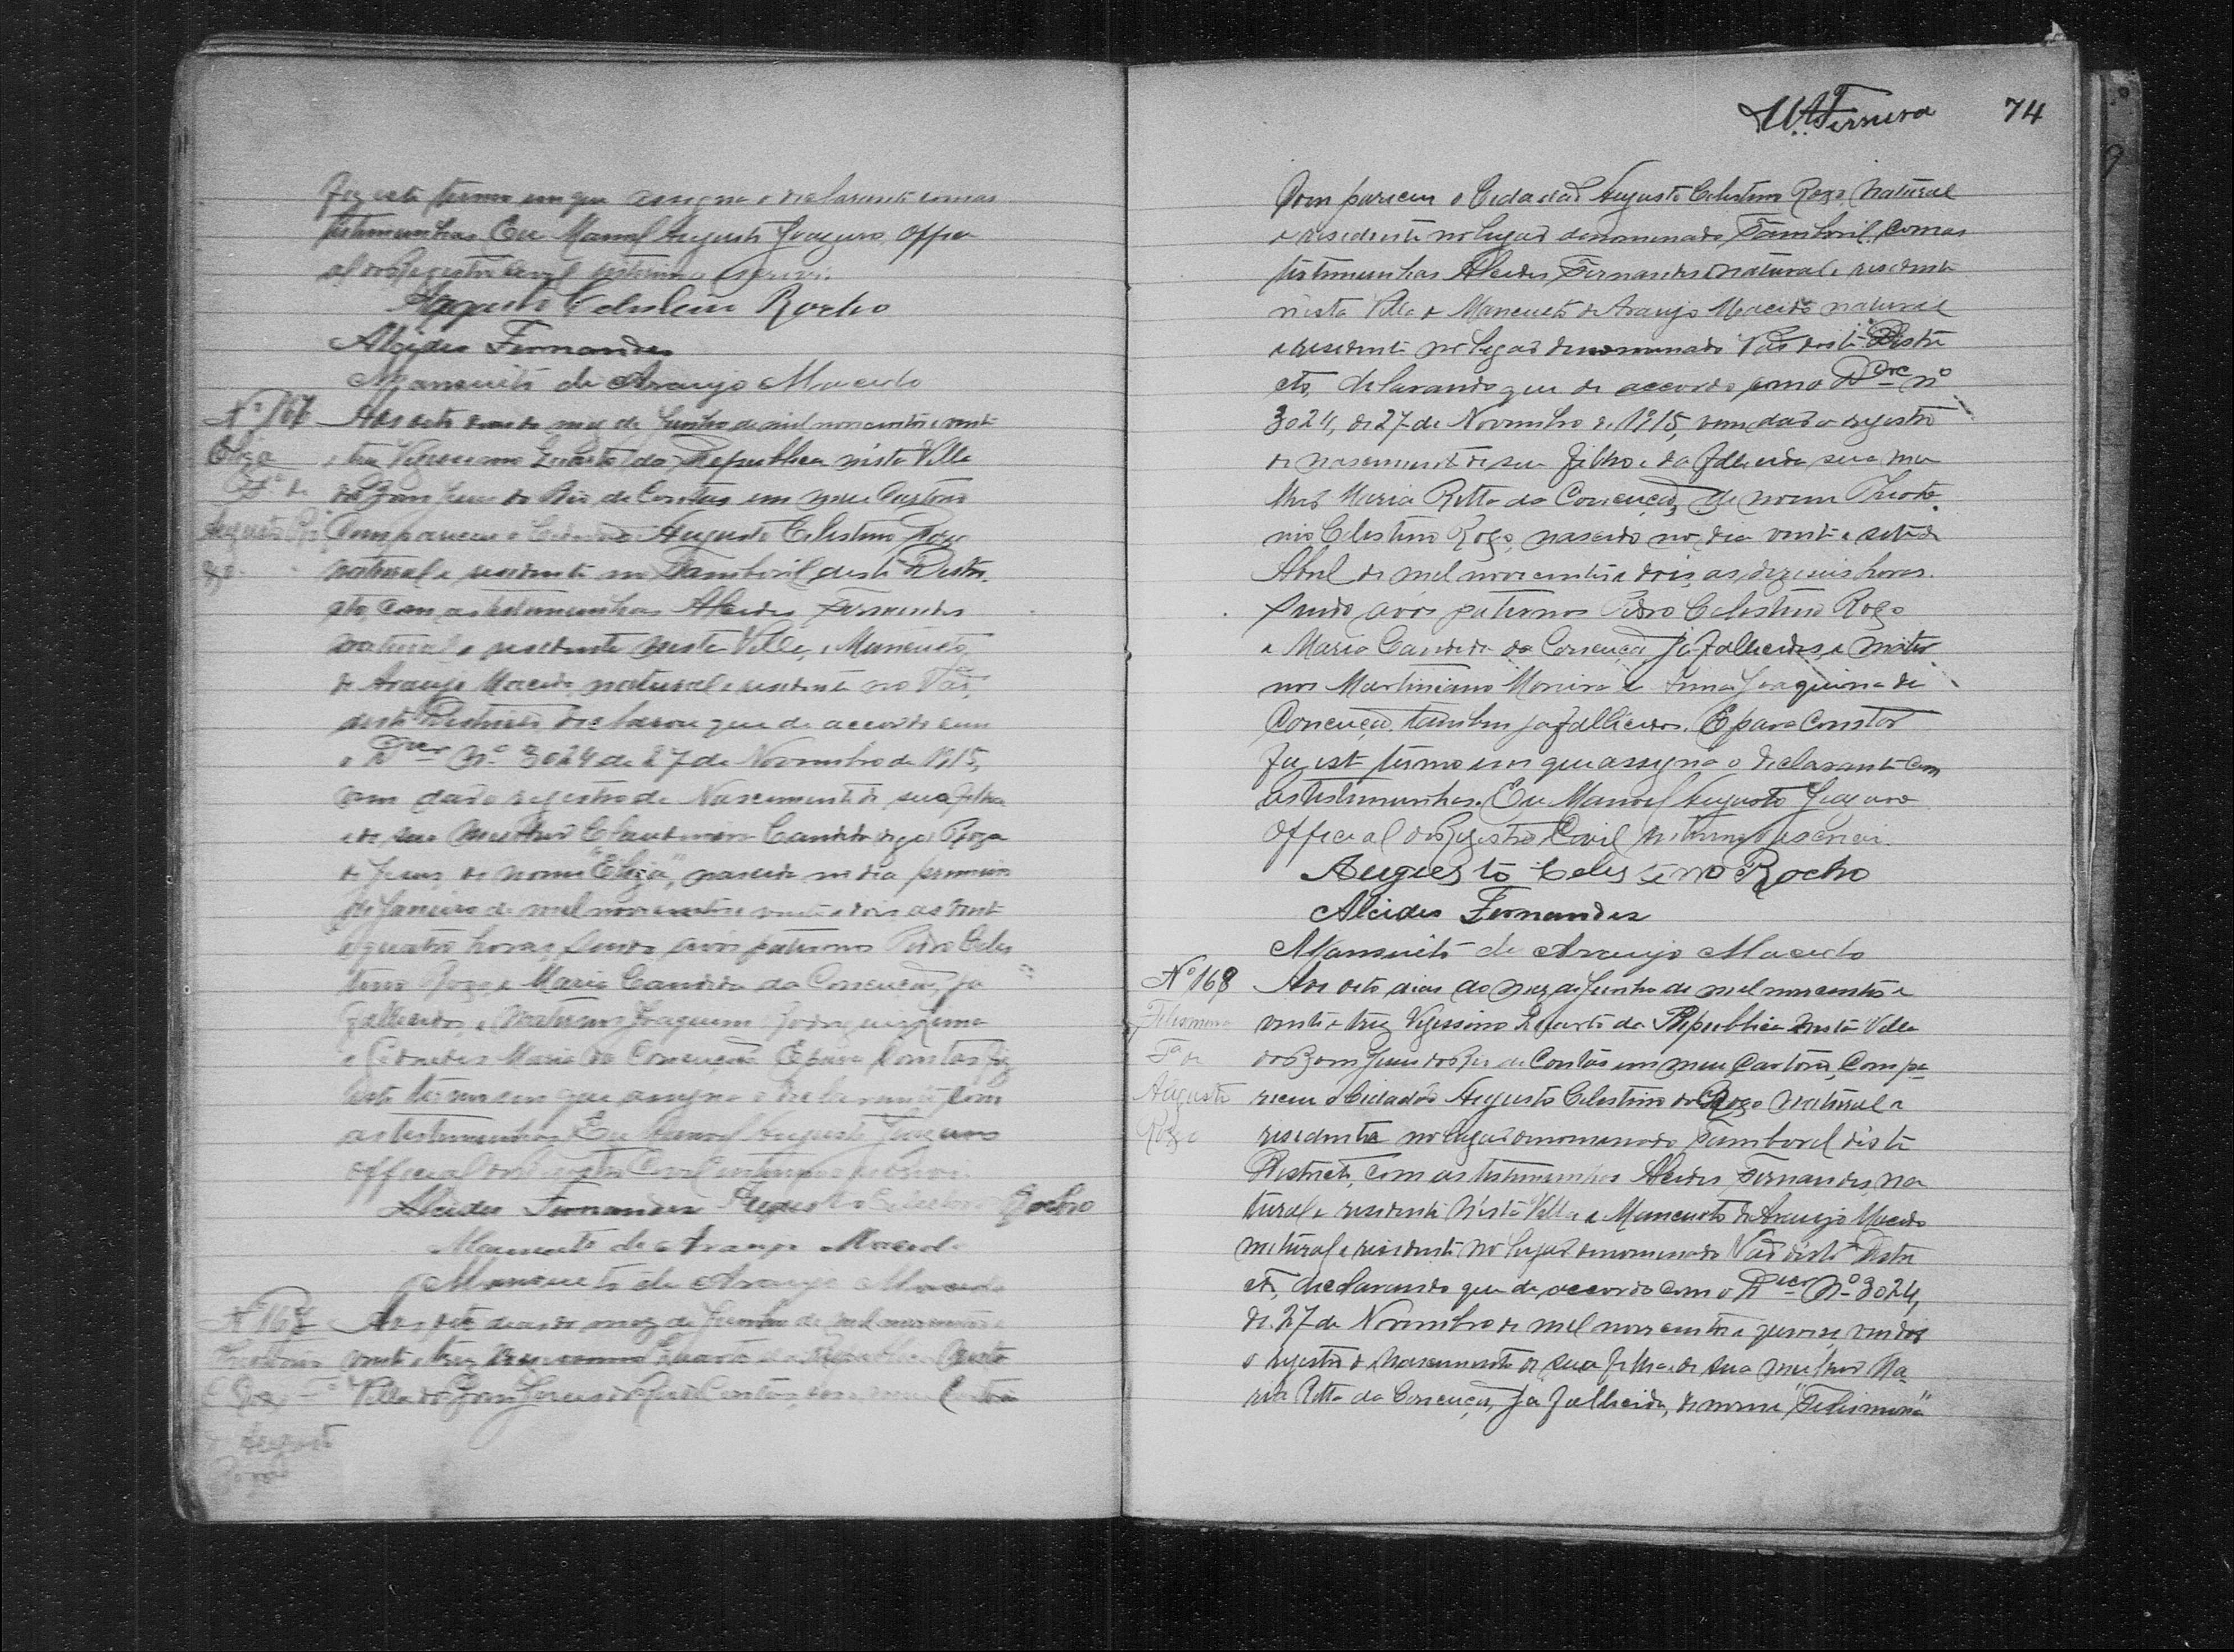 Fez este termo em que assigna o declarante com as
testemunhas Eu Manoel Augusto Official
do Registro Civil escrevi.
Augusto Celestino Rocho
Alcides Fernandes
Mansueto de Araujo Macedo
Nº 167
Eliza
Fª de
Augusto Ro
zo
Aos oito dias do mez de Junho de mil novecentos e vinte
e trez Vigessimo Quarto da Republica nesta Villa
do Bom Jesus do Rio de Contas em meu Cartorio
Compareceu o Cidadão Augusto Celestino Rozo
natural e residente no Tamboril deste Distri
cto, com as testemunhas Alcides Fernandes
natural e residente nesta Villa, e Mancueto
de Araujo Macedo natural e residente no Vão,
deste Districto declarou que de accordo com
o Decr Nº 3024 de 27 de Novembro de 1915,
vem dar o registro de Nascimento de sua filha
e de sua mulher Candida Roza
de Jesus, de nome "Eliza", nascida no dia primeiro
de Janeiro de mil novecentos e vinte e dois as vinte
e quatro horas, sendo avós paternos Pedro Celes
tino Rozo e Maria Candida da Conceução, ja
fallecidos, e Maternos Joaquim
e Maria da Conceução. E para constar fiz
este termo em que assigna o declarante com
as testemunhas Eu Manoel Augusto
Official do Registro Civil
Alcides Fernandes Augusto Celestino Rocho
Mansueto de Araujo Macedo
Mansueto de Araujo Macedo
Nº 167
Augusto
Aos oito dias do mez de Junho de mil novecentos e
vinte e trez Vigessimo Quarto da Republica Nesta
Villa do Bom Jesus do Rio de Contas, em meu Cartorio
M.A.Ferreira 74
Compareceu o Cidadão Augusto Celestino Rozo, Natural
e residente no lugar denominado Tamboril, com as
testemunhas Alcides Fernandes natural e residente
nesta Villa e Mancueto de Araujo Macedo natural
e residente no lugar denominado Vão deste Distri
cto, declarando que de accordo com o Decre nº
3024, de 27 de Novembro de 1915, vem dar o registro
de nascimento de seu filho e da fallecida sua mu
lher Maria Ritta da Conceução, de nome Theoto
nio Celestino Rozo, nascido no dia vinte e sete de
Abril de mil novecentos e dois, as dezeseis horas.
sendo avós paternos Pedro Celestino Rozo
e Maria Candida da Conceução já fallecidos, e mater
nos Martiniano Moreira e Anna Joaquina da
Conceução, tambem ja fallicidos. E para constar
fez este termo em que assigna o declarante com
as testemunhas. Eu Manoel Augusto
Official do Registro Civil escrevi.
Augusto Celestino Rocho
Alcides Fernandes
Mansueto de Araujo Macedo
Nº 168
Felismina
Fª de
Augusto
Rozo
Aos oito dias do mez de Junho de mil novecentos e
vinte e trez Vigessimo Quarto da Republica Nesta Villa
do Bom Jesus do Rio de Contas em meu Cartorio, Compa
receu o Cidadão Augusto Celestino do Rozo Natural e
residente no lugar denominado Tamboril deste
Districto, com as testemunhas Alcides Fernandes, na
tural e residente Nesta Villa e Mancueto de Araujo Macedo
natural e residente no lugar denominado Vão deste Distri
cto, declarando que de accordo com o Decr Nº 3024,
de 27 de Novembro de mil novecentos e quinze, vem dar
o registro de Nascimento de sua filha e de sua mulher Ma
ria Ritta da Conceução, Ja fallecida, de nome "Felismina"